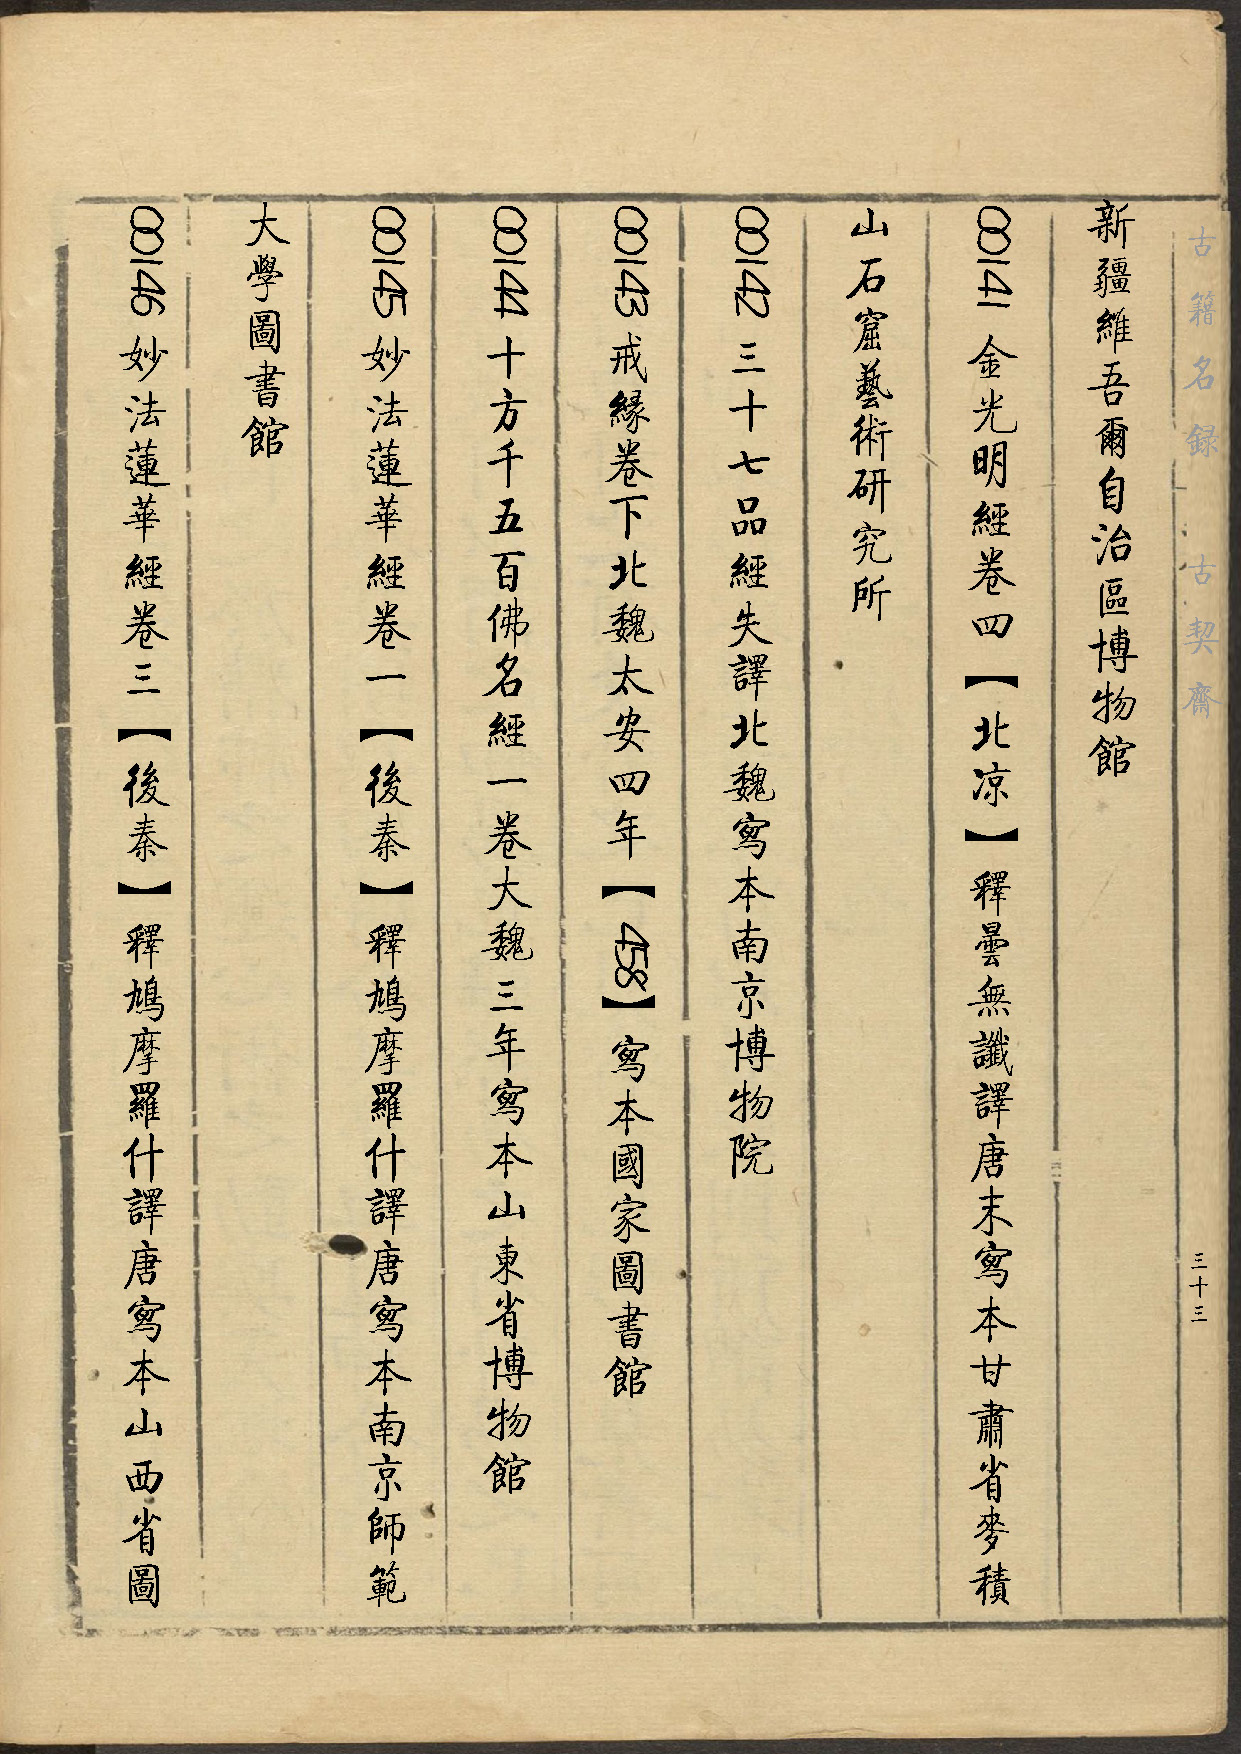 古籍名録 古契齋
三十三
新疆維吾爾自治區博物館
00141 金光明經卷四【北涼】釋曇無讖譯唐末寫本甘肅省麥積
山石窟藝術研究所
00142 三十七品經失譯北魏寫本南京博物院
00143 戒緣卷下北魏太安四年【458】寫本國家圖書館
00144 十方千五百佛名經一卷大魏三年寫本山東省博物館
00145 妙法蓮華經卷一【後秦】釋鳩摩羅什譯唐寫本南京師範
大學圖書館
00146 妙法蓮華經卷三【後秦】釋鳩摩羅什譯唐寫本山西省圖